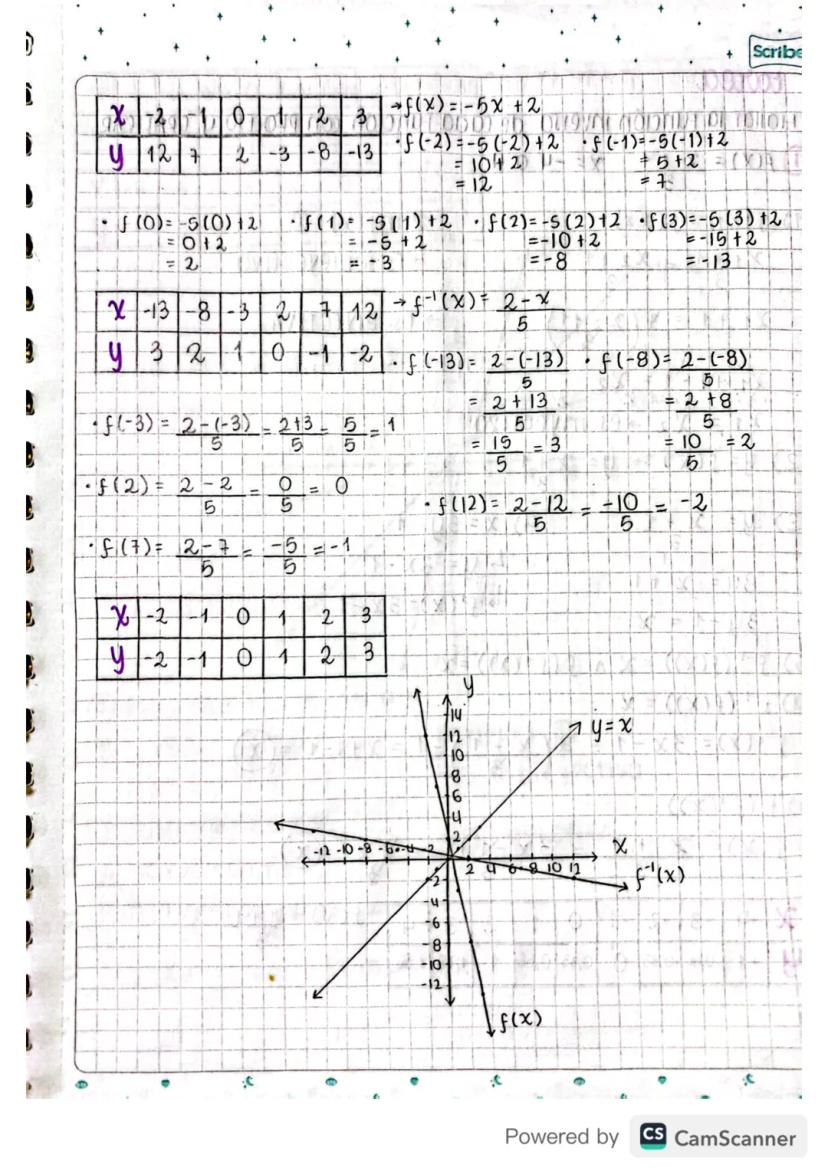 Scribe
x | -2 | -1 | 0 | 1 | 2 | 3 → f(x) = -5x + 2
y | 12 | 7 | 2 | -3 | -8 | -13
· f(-2) = -5(-2) + 2 · f(-1) = -5(-1) + 2
= 10 + 2 = 5 + 2
= 12 = 7
· f(0) = -5(0) + 2 · f(1) = -5(1) + 2 · f(2) = -5(2) + 2 · f(3) = -5(3) + 2
= 0 + 2 = -5 + 2 = -10 + 2 = -15 + 2
= 2 = -3 = -8 = -13
x | -13 | -8 | -3 | 2 | 7 | 12 → f⁻¹(x) = (2 - x)/5
y | 3 | 2 | 1 | 0 | -1 | -2
· f(-13) = (2 - (-13))/5 · f(-8) = (2 - (-8))/5
= (2 + 13)/5 = (2 + 8)/5
= 15/5 = 3 = 10/5 = 2
· f(-3) = (2 - (-3))/5 = (2 + 3)/5 = 5/5 = 1
· f(2) = (2 - 2)/5 = 0/5 = 0
· f(12) = (2 - 12)/5 = -10/5 = -2
· f(7) = (2 - 7)/5 = -5/5 = -1
x | -2 | -1 | 0 | 1 | 2 | 3
y | -2 | -1 | 0 | 1 | 2 | 3
y
14
12
10
8
6
4
2
y = x
-12 -10 -8 -6 -4 -2
x
2 4 6 8 10 12
f⁻¹(x)
-2
-4
-6
-8
-10
-12
f(x)
Powered by CS CamScanner